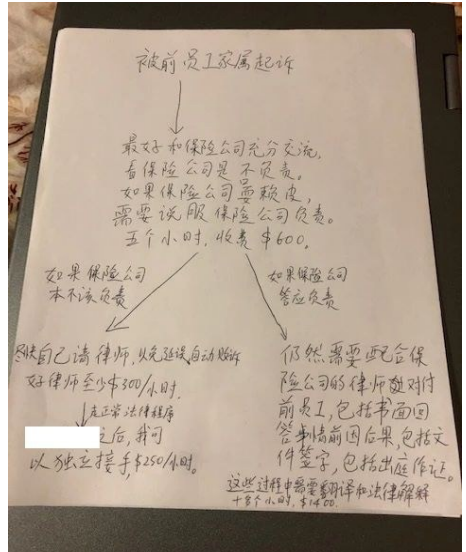 被前员工家属起诉
最好和保险公司充分交流,
看保险公司是不负责。
如果保险公司耍赖皮,
需要说服保险公司负责。
五个小时,收费$600,
如果保险公司
本不该负责
如果保险公司
答应负责
尽快自己请律师,以免延误自动败诉
好律师至少$300/小时.
走正常法律程序
之后,我可
以独立接手,$250/小时。
仍然需要配合保
险公司的律师对付
前员工,包括书面回
答事情前因后果,包括文
件签字,包括出庭作证。
这些过程中需要翻译和法律解释
十个小时,$1400.